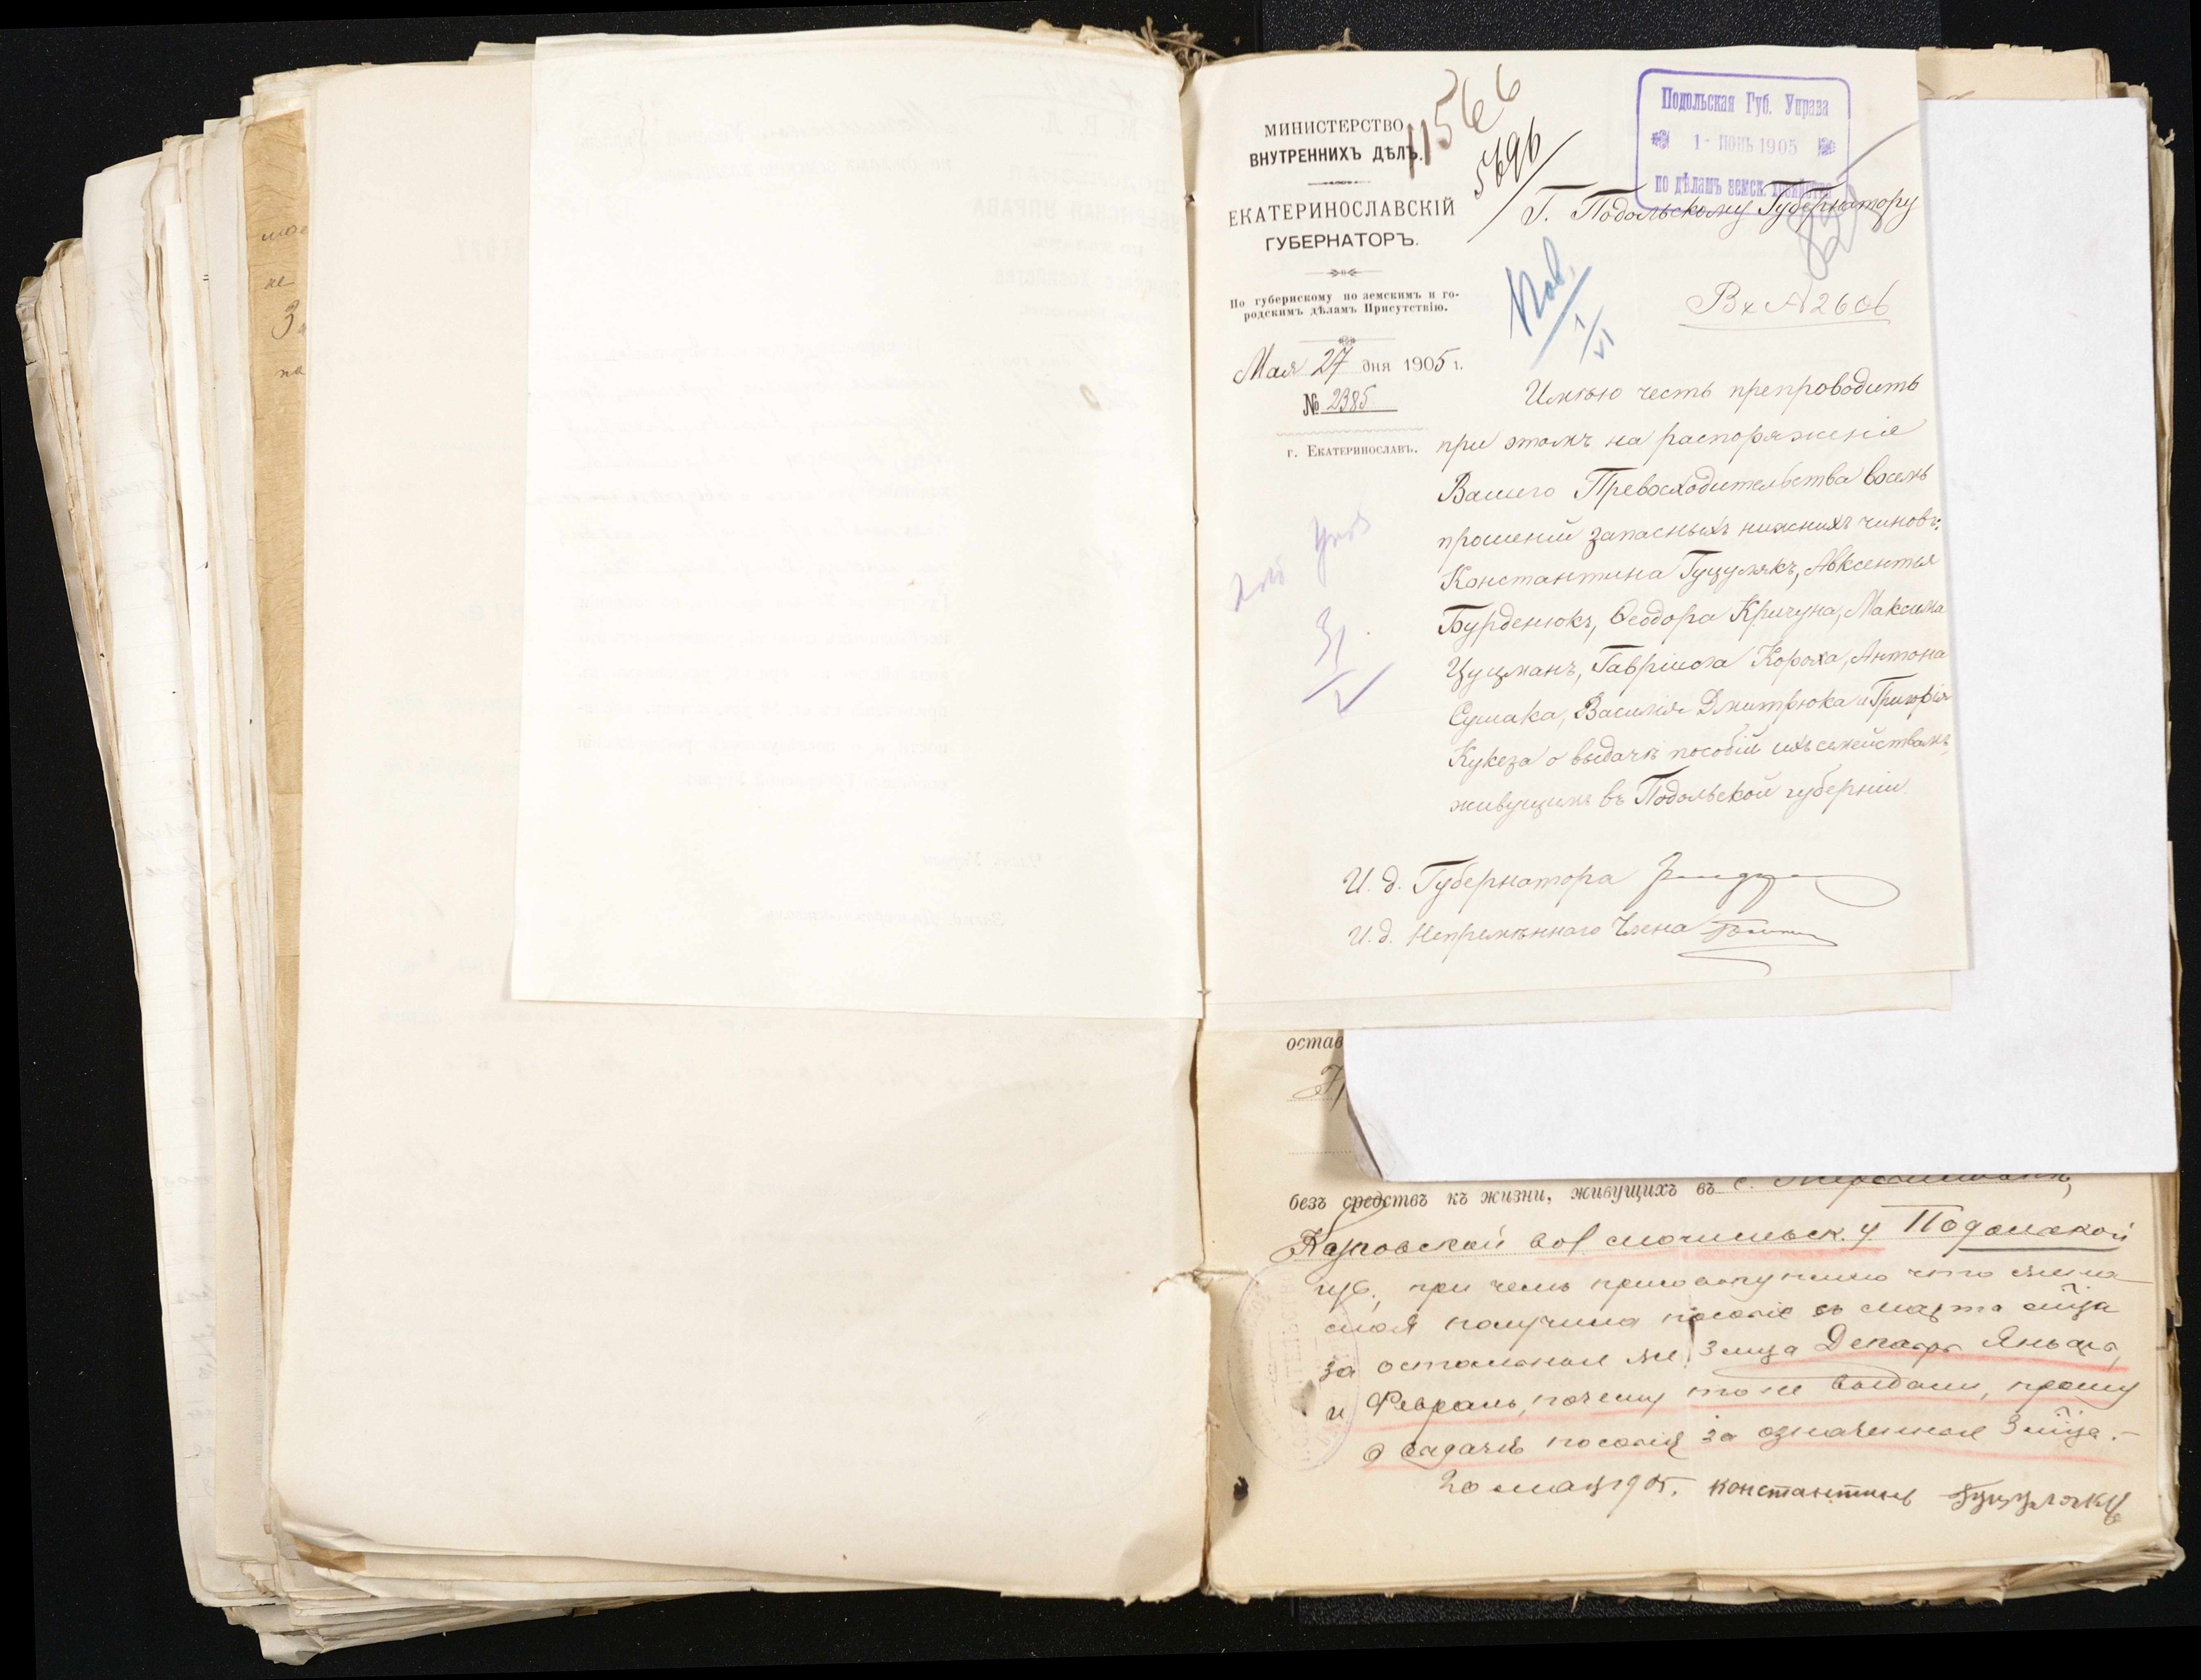 МИНИСТЕРСТВО
ВНУТРЕННИХЪ ДѢЛЪ.
ЕКАТЕРИНОСЛАВСКІЙ
ГУБЕРНАТОРЪ.
По губернскому по земскимъ и го-
родскимъ дѣламъ Присутствію.
Мая 27 дня 1905 г.
№ 2385
г. Екатеринославъ.
566
5696
Подольская Губ. Управа
1 - ІЮНЬ 1905
по дѣламъ земск. хозяйства
Г. Подольскому Губернатору
Вх А 2606
1/VI
31/V
Имѣю честь препроводить
при этомъ на распоряженіе
Вашего Превосходительства восемь
прошеній запасныхъ нижнихъ чиновъ:
Константина Гуцулякъ, Авксентія
Бурденюкъ, Ѳеодора Кричуна, Максима
Цуцманъ, Гавріила Короха, Антона
Сушака, Василія Дмитрюка и Григорія
Кукеза о выдачѣ пособій ихъ семействамъ,
живущимъ въ Подольской губерніи.
И. д. Губернатора
И. д. Непремѣннаго Члена
остав
безъ средствъ къ жизни, живущихъ въ с.
вол могильск. у Подольской
губ., при чемъ присовокупляю что
моя получила пособіе съ марта м-ца
за остальные же 3 м-ца Декабрь Январь,
и Февраль, почему то не выдали, прошу
о выдачѣ пособія за означенные 3 м-ца. -
20 мая 1905. Константинъ Гуцулякъ